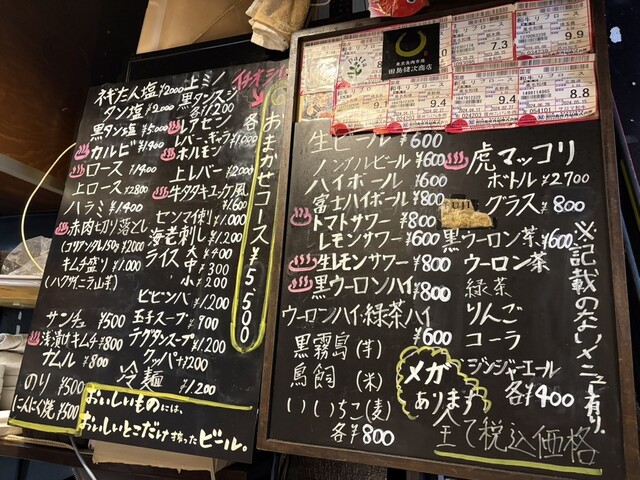 ネギたん塩 ¥2000
タン塩 ¥2000
黒タン塩 ¥5000
カルビ ¥1900
ロース ¥1900
上ロース ¥2800
ハラミ ¥1900
赤肉切り落とし
キムチ盛り ¥1,000
サンチュ ¥500
浅漬けキムチ ¥800
ナムル ¥800
のり ¥500
にんにく焼 ¥500
上ミノ
黒タンスジ
各¥1200
レアセン
レバー、ギャラ ¥1000
ホルモン
上レバー ¥1200
牛タタキユッケ風
¥1600
センマイ刺し ¥1,000
海老刺し ¥1,200
ライス 大 ¥400
中 ¥300
小 ¥200
ビビンバ ¥1200
玉子スープ ¥900
テグタンスープ ¥1200
クッパ +¥200
冷麺 ¥1,200
イチオシ
おまかせコース ¥5,500
おいしいものには、
おいしいとこだけ搾ったビール。
田島健次商店
7.3
9.9
9.4
9.4
9.1
8.8
生ビール ¥600
ノンアルビール ¥600
ハイボール ¥600
富士ハイボール ¥800
トマトサワー ¥800
レモンサワー ¥600
生レモンサワー ¥800
黒ウーロンハイ ¥800
ウーロンハイ・緑茶ハイ
¥600
黒霧島 (芋)
鳥飼 (米)
いいちこ (麦)
各¥800
虎マッコリ
ボトル ¥2700
グラス ¥800
黒ウーロン茶 ¥600
ウーロン茶
緑茶
りんご
コーラ
ジンジャーエール
各¥400
メガあります
全て税込価格
※記載のないメニュー有り。